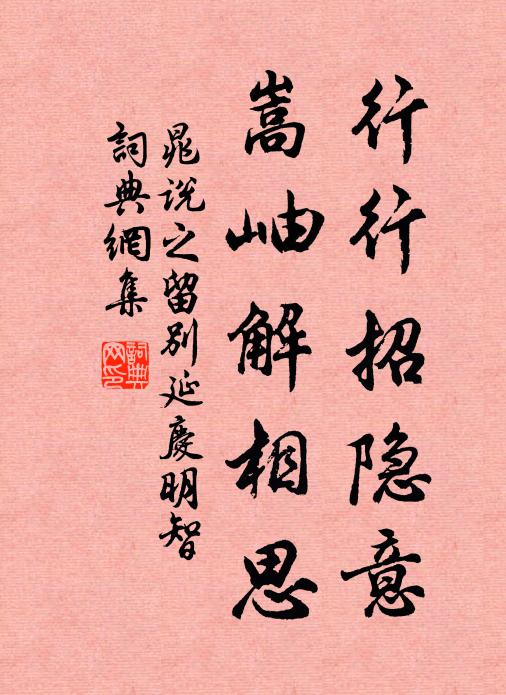 行行招隐意
嵩岫解相思
晁说之留别延慶明智
詞典網集
詞典
网印